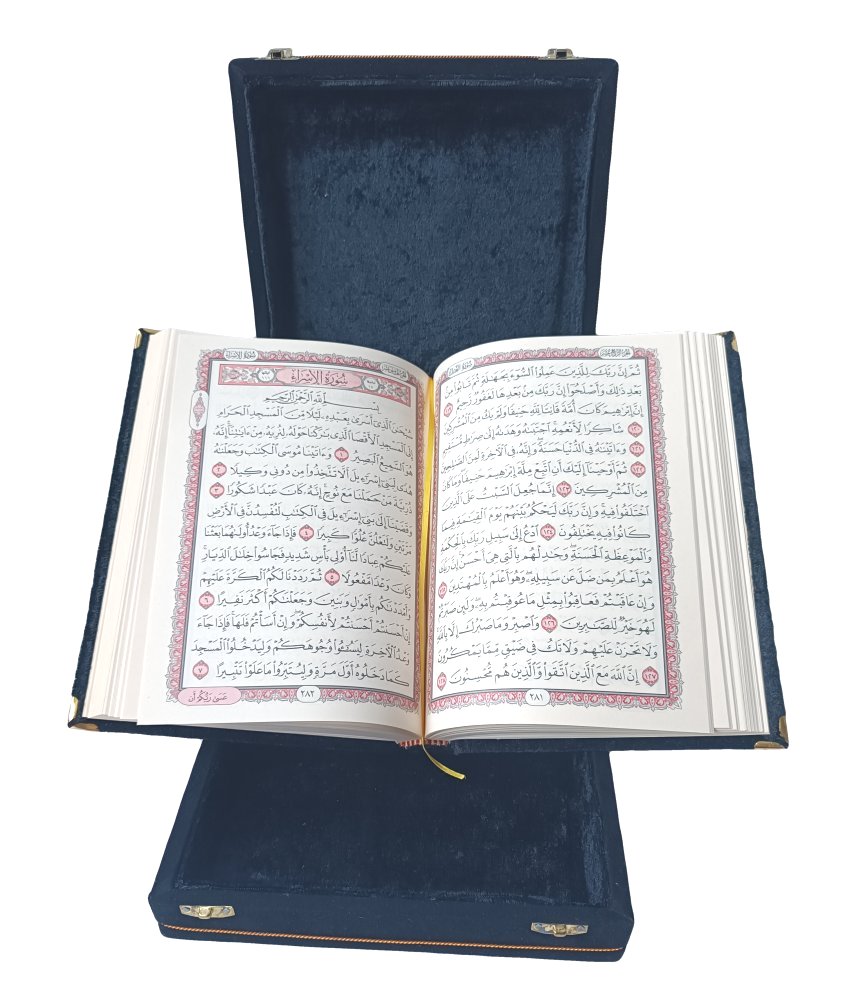 الجزء الرابع عشر
سورة النحل
ثُمَّ إِنَّ رَبَّكَ لِلَّذِينَ عَمِلُوا۟ ٱلسُّوٓءَ بِجَهَٰلَةٍ ثُمَّ تَابُوا۟ مِنۢ
بَعْدِ ذَٰلِكَ وَأَصْلَحُوٓا۟ إِنَّ رَبَّكَ مِنۢ بَعْدِهَا لَغَفُورٌ رَّحِيمٌ ١١٩
إِنَّ إِبْرَٰهِيمَ كَانَ أُمَّةً قَانِتًا لِّلَّهِ حَنِيفًا وَلَمْ يَكُ مِنَ ٱلْمُشْرِكِينَ
١٢٠ شَاكِرًا لِّأَنْعُمِهِ ٱجْتَبَىٰهُ وَهَدَىٰهُ إِلَىٰ صِرَٰطٍ مُّسْتَقِيمٍ
١٢١ وَءَاتَيْنَٰهُ فِى ٱلدُّنْيَا حَسَنَةً وَإِنَّهُۥ فِى ٱلْءَاخِرَةِ لَمِنَ ٱلصَّٰلِحِينَ
١٢٢ ثُمَّ أَوْحَيْنَآ إِلَيْكَ أَنِ ٱتَّبِعْ مِلَّةَ إِبْرَٰهِيمَ حَنِيفًا وَمَا كَانَ
مِنَ ٱلْمُشْرِكِينَ ١٢٣ إِنَّمَا جُعِلَ ٱلسَّبْتُ عَلَى ٱلَّذِينَ
ٱخْتَلَفُوا۟ فِيهِ وَإِنَّ رَبَّكَ لَيَحْكُمُ بَيْنَهُمْ يَوْمَ ٱلْقِيَٰمَةِ فِيمَا
كَانُوا۟ فِيهِ يَخْتَلِفُونَ ١٢٤ ٱدْعُ إِلَىٰ سَبِيلِ رَبِّكَ بِٱلْحِكْمَةِ
وَٱلْمَوْعِظَةِ ٱلْحَسَنَةِ وَجَٰدِلْهُم بِٱلَّتِى هِىَ أَحْسَنُ إِنَّ رَبَّكَ
هُوَ أَعْلَمُ بِمَن ضَلَّ عَن سَبِيلِهِۦ وَهُوَ أَعْلَمُ بِٱلْمُهْتَدِينَ ١٢٥
وَإِنْ عَاقَبْتُمْ فَعَاقِبُوا۟ بِمِثْلِ مَا عُوقِبْتُم بِهِۦ وَلَئِن صَبَرْتُمْ
لَهُوَ خَيْرٌ لِّلصَّٰبِرِينَ ١٢٦ وَٱصْبِرْ وَمَا صَبْرُكَ إِلَّا بِٱللَّهِ
وَلَا تَحْزَنْ عَلَيْهِمْ وَلَا تَكُ فِى ضَيْقٍ مِّمَّا يَمْكُرُونَ
١٢٧ إِنَّ ٱللَّهَ مَعَ ٱلَّذِينَ ٱتَّقَوا۟ وَّٱلَّذِينَ هُم مُّحْسِنُونَ ١٢٨
٢٨١
سورة الإسراء
سُورَةُ الإِسْرَاءِ
بِسْمِ ٱللَّهِ ٱلرَّحْمَٰنِ ٱلرَّحِيمِ
سُبْحَٰنَ ٱلَّذِىٓ أَسْرَىٰ بِعَبْدِهِۦ لَيْلًا مِّنَ ٱلْمَسْجِدِ ٱلْحَرَامِ
إِلَى ٱلْمَسْجِدِ ٱلْأَقْصَا ٱلَّذِى بَٰرَكْنَا حَوْلَهُۥ لِنُرِيَهُۥ مِنْ ءَايَٰتِنَآ إِنَّهُۥ
هُوَ ٱلسَّمِيعُ ٱلْبَصِيرُ ١ وَءَاتَيْنَا مُوسَى ٱلْكِتَٰبَ وَجَعَلْنَٰهُ
هُدًى لِّبَنِىٓ إِسْرَٰٓءِيلَ أَلَّا تَتَّخِذُوا۟ مِن دُونِى وَكِيلًا ٢
ذُرِّيَّةَ مَنْ حَمَلْنَا مَعَ نُوحٍ إِنَّهُۥ كَانَ عَبْدًا شَكُورًا ٣
وَقَضَيْنَآ إِلَىٰ بَنِىٓ إِسْرَٰٓءِيلَ فِى ٱلْكِتَٰبِ لَتُفْسِدُنَّ فِى ٱلْأَرْضِ
مَرَّتَيْنِ وَلَتَعْلُنَّ عُلُوًّا كَبِيرًا ٤ فَإِذَا جَآءَ وَعْدُ أُولَىٰهُمَا بَعَثْنَا
عَلَيْكُمْ عِبَادًا لَّنَآ أُو۟لِى بَأْسٍ شَدِيدٍ فَجَاسُوا۟ خِلَٰلَ ٱلدِّيَارِ
وَكَانَ وَعْدًا مَّفْعُولًا ٥ ثُمَّ رَدَدْنَا لَكُمُ ٱلْكَرَّةَ عَلَيْهِمْ
وَأَمْدَدْنَٰكُم بِأَمْوَٰلٍ وَبَنِينَ وَجَعَلْنَٰكُمْ أَكْثَرَ نَفِيرًا ٦
إِنْ أَحْسَنتُمْ أَحْسَنتُمْ لِأَنفُسِكُمْ وَإِنْ أَسَأْتُمْ فَلَهَا فَإِذَا جَآءَ
وَعْدُ ٱلْءَاخِرَةِ لِيَسُۥٓـُٔوا۟ وُجُوهَكُمْ وَلِيَدْخُلُوا۟ ٱلْمَسْجِدَ
كَمَا دَخَلُوهُ أَوَّلَ مَرَّةٍ وَلِيُتَبِّرُوا۟ مَا عَلَوْا۟ تَتْبِيرًا ٧
٢٨٢
عَسَىٰ رَبُّكُمْ أَن